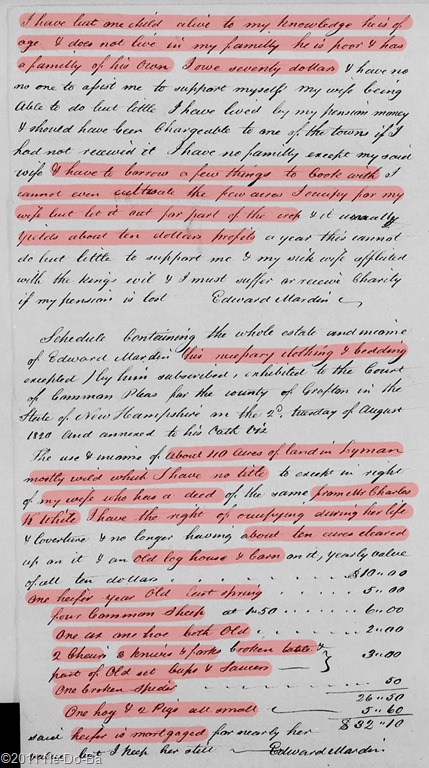 I have but one child alive to my knowledge he is of
age & does not live in my familly he is poor & has
a familly of his own I owe seventy dollars & have no
no one to asist me to support myself my wife being
Able to do but little I have lived by my pension money
& should have been Chargeable to one of the towns if I
had not received it I have no familly except my said
wife & have to borrow a few things to cook with I
cannot even cultivate the few acres I occupy for my
wife but let it out for part of the crop & it usually
yields about ten dollars profits a year this cannot
do but little to support me & my sick wife afflicted
with the kings evil & I must suffer or receive Charity
if my pension is lost Edward Mardin
Schedule Containing the whole estate and income
of Edward Mardin his necessary clothing & bedding
excepted by him subscribed, exhibited to the Court
of Common Pleas for the county of Grafton in the
State of New Hampshire on the 2d. tuesday of August
1820 And annexed to his Oath Viz
The use & income of about 110 Acres of land in Lyman
mostly wild which I have no title to except in right
of my wife who has a deed of the same from Mr Charles
White I have the right of occupying during her life
& coverture & no longer having about ten acres cleared
up on it & an Old log house & barn on it, yearly value
of all ten dollars $10"00
One heifer year Old last spring 5"00
four Common Sheep at 1"50 6"00
One ax one hoe both Old 2"00
2 Chairs 3 knives & forks broken table &
part of Old set Cups & Saucers 3"00
One broken Spider 50
26"50
One hog & 2 Pigs all small 5"60
$32"10
said heifer is mortgaged for nearly her
value but I keep her still Edward Mardin
© 2011 Tie-Do-Ba